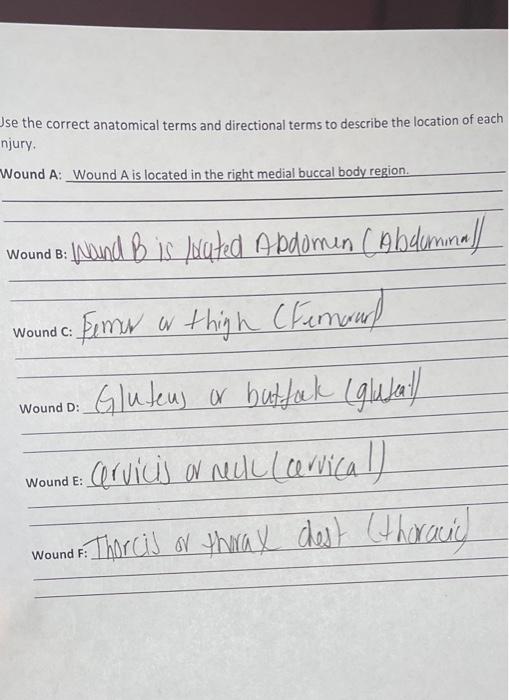 Use the correct anatomical terms and directional terms to describe the location of each
njury.
Wound A: Wound A is located in the right medial buccal body region.
Wound B: Wound B is located Abdomen (Abdominal)
Wound C: Femur or thigh (Femoral)
Wound D: Gluteus or buttock (gluteal)
Wound E: Cervicis or neck (cervical)
Wound F: Thorcis or thorax chest (thoracic)